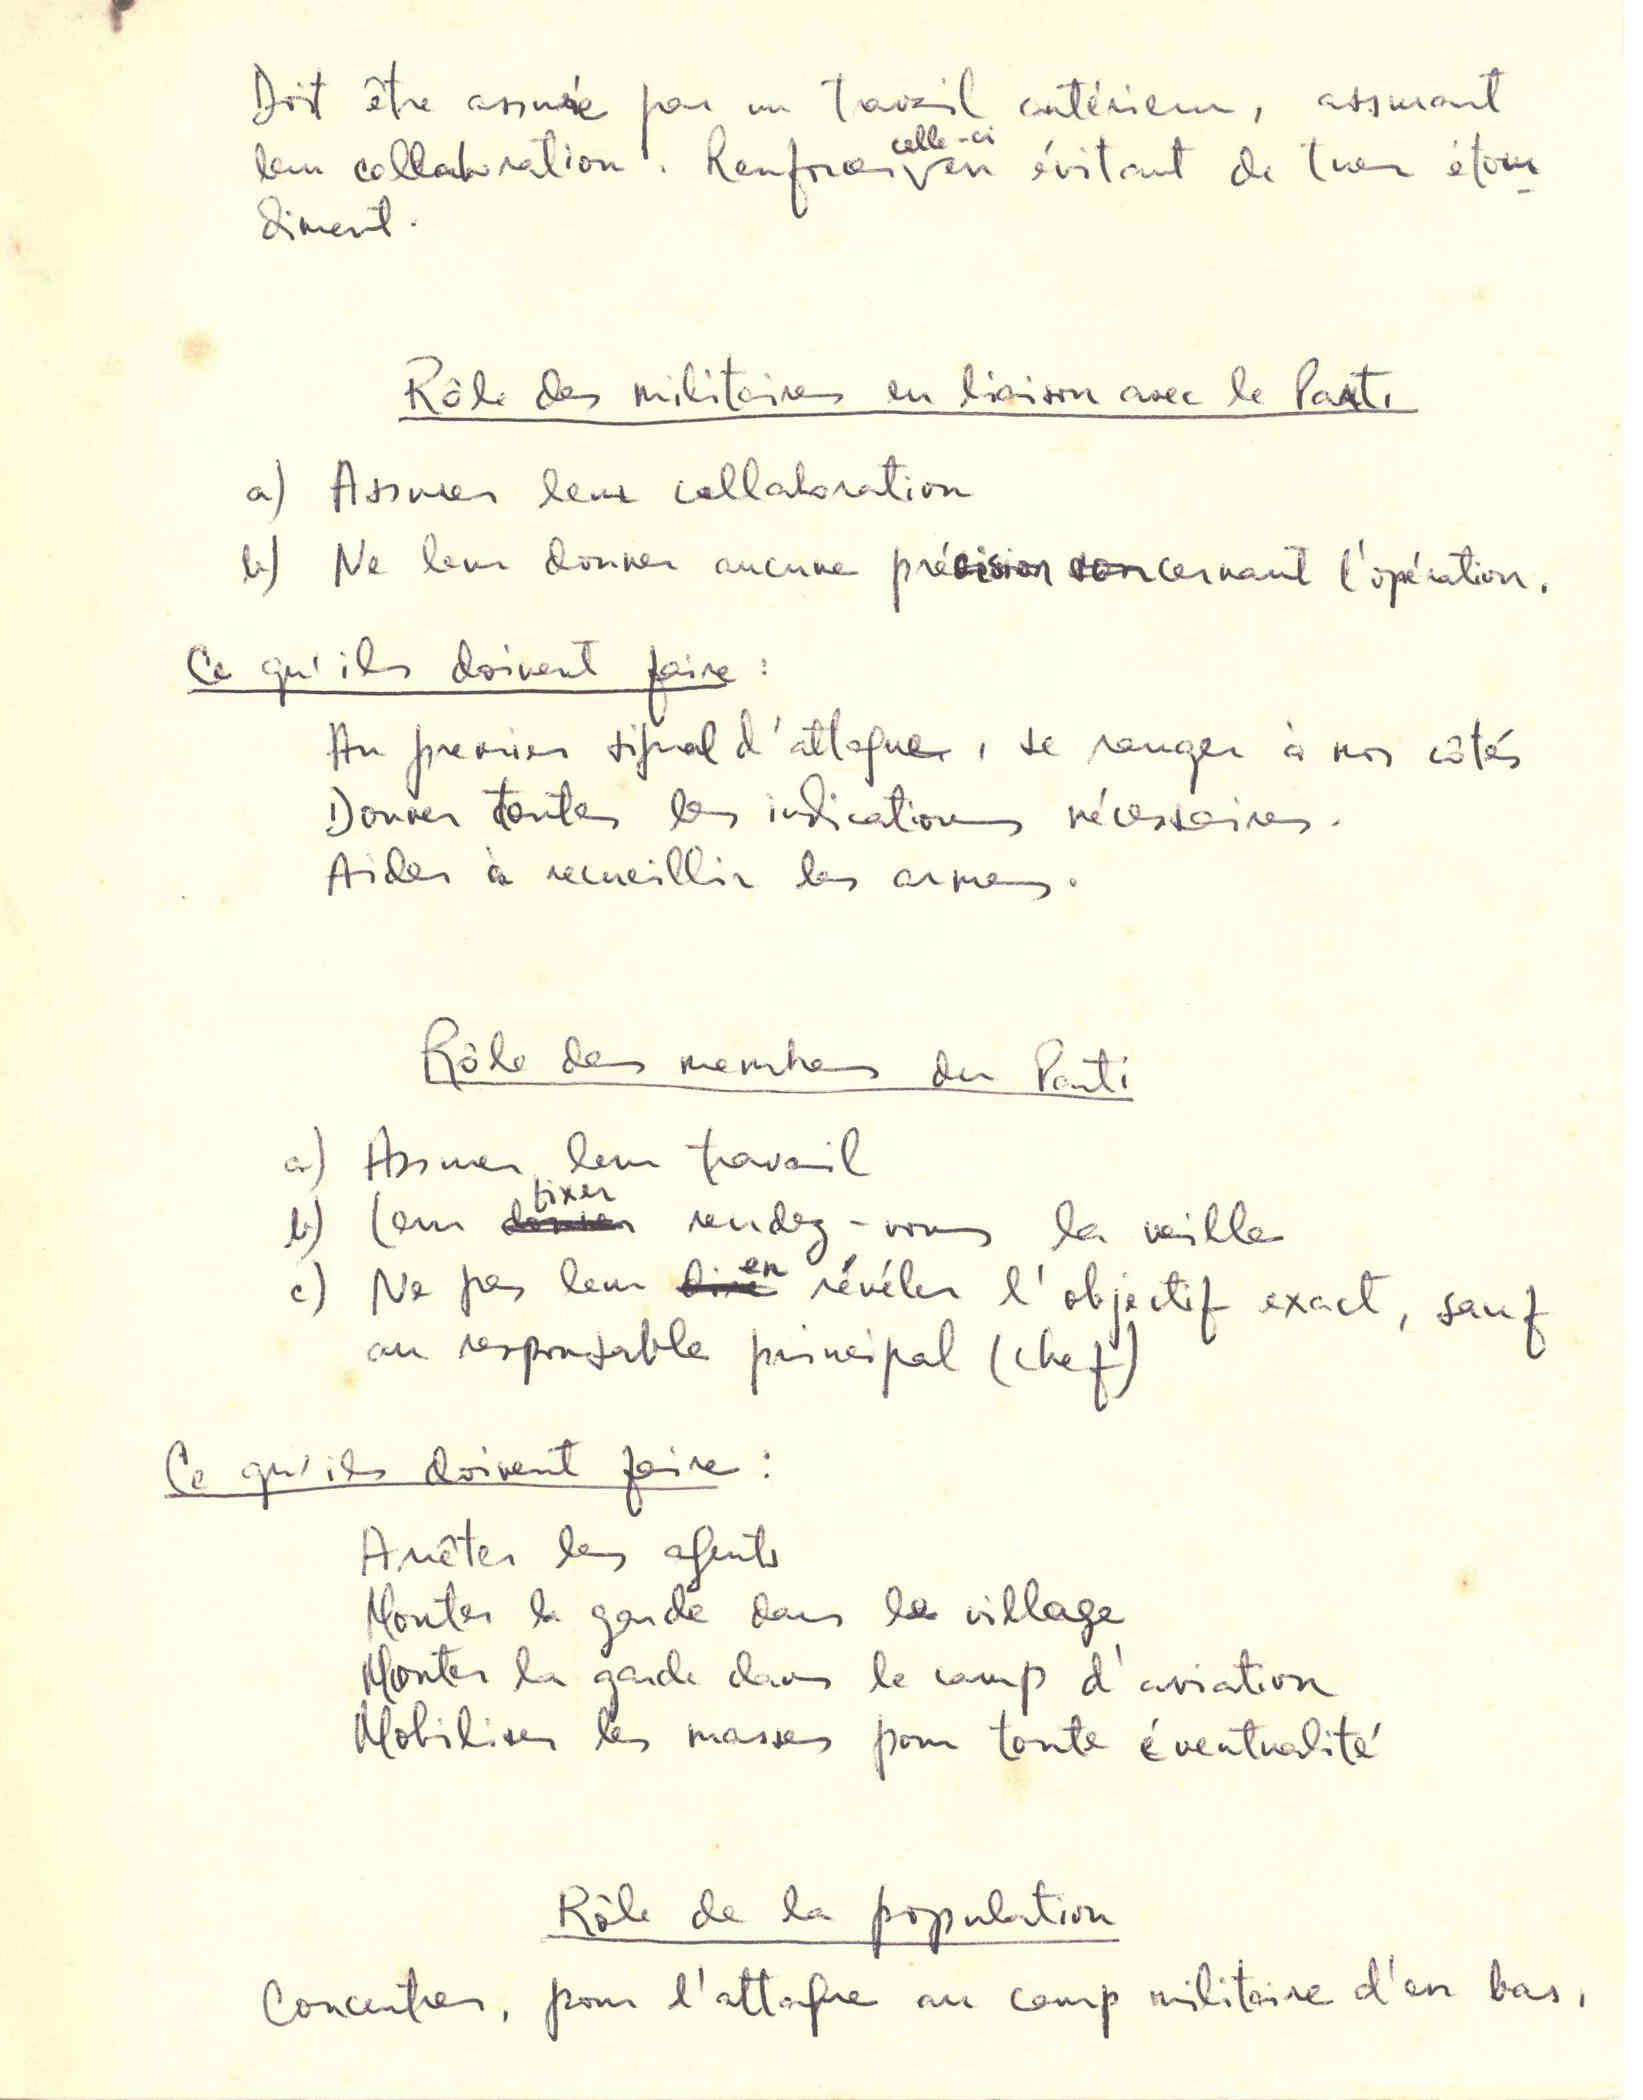 Doit être assurée par un travail antérieur, assurant
leur collaboration. Renforcer celle-ci en évitant de tuer étour
diment.
Rôle des militaires en liaison avec le Parti
a) Assurer leur collaboration
b) Ne leur donner aucune précision concernant l'opération.
Ce qu'ils doivent faire :
Au premier signal d'attaque, se ranger à nos côtés
Donner toutes les indications nécessaires.
Aider à recueillir les armes.
Rôle des membres du Parti
a) Assurer leur travail
b) Leur donner fixer rendez-vous la veille
c) Ne pas leur dire en révéler l'objectif exact, sauf
au responsable principal (chef)
Ce qu'ils doivent faire :
Arrêter les agents
Monter la garde dans le village
Monter la garde dans le camp d'aviation
Mobiliser les masses pour toute éventualité
Rôle de la population
Concentrer, pour l'attaque au camp militaire d'en bas,